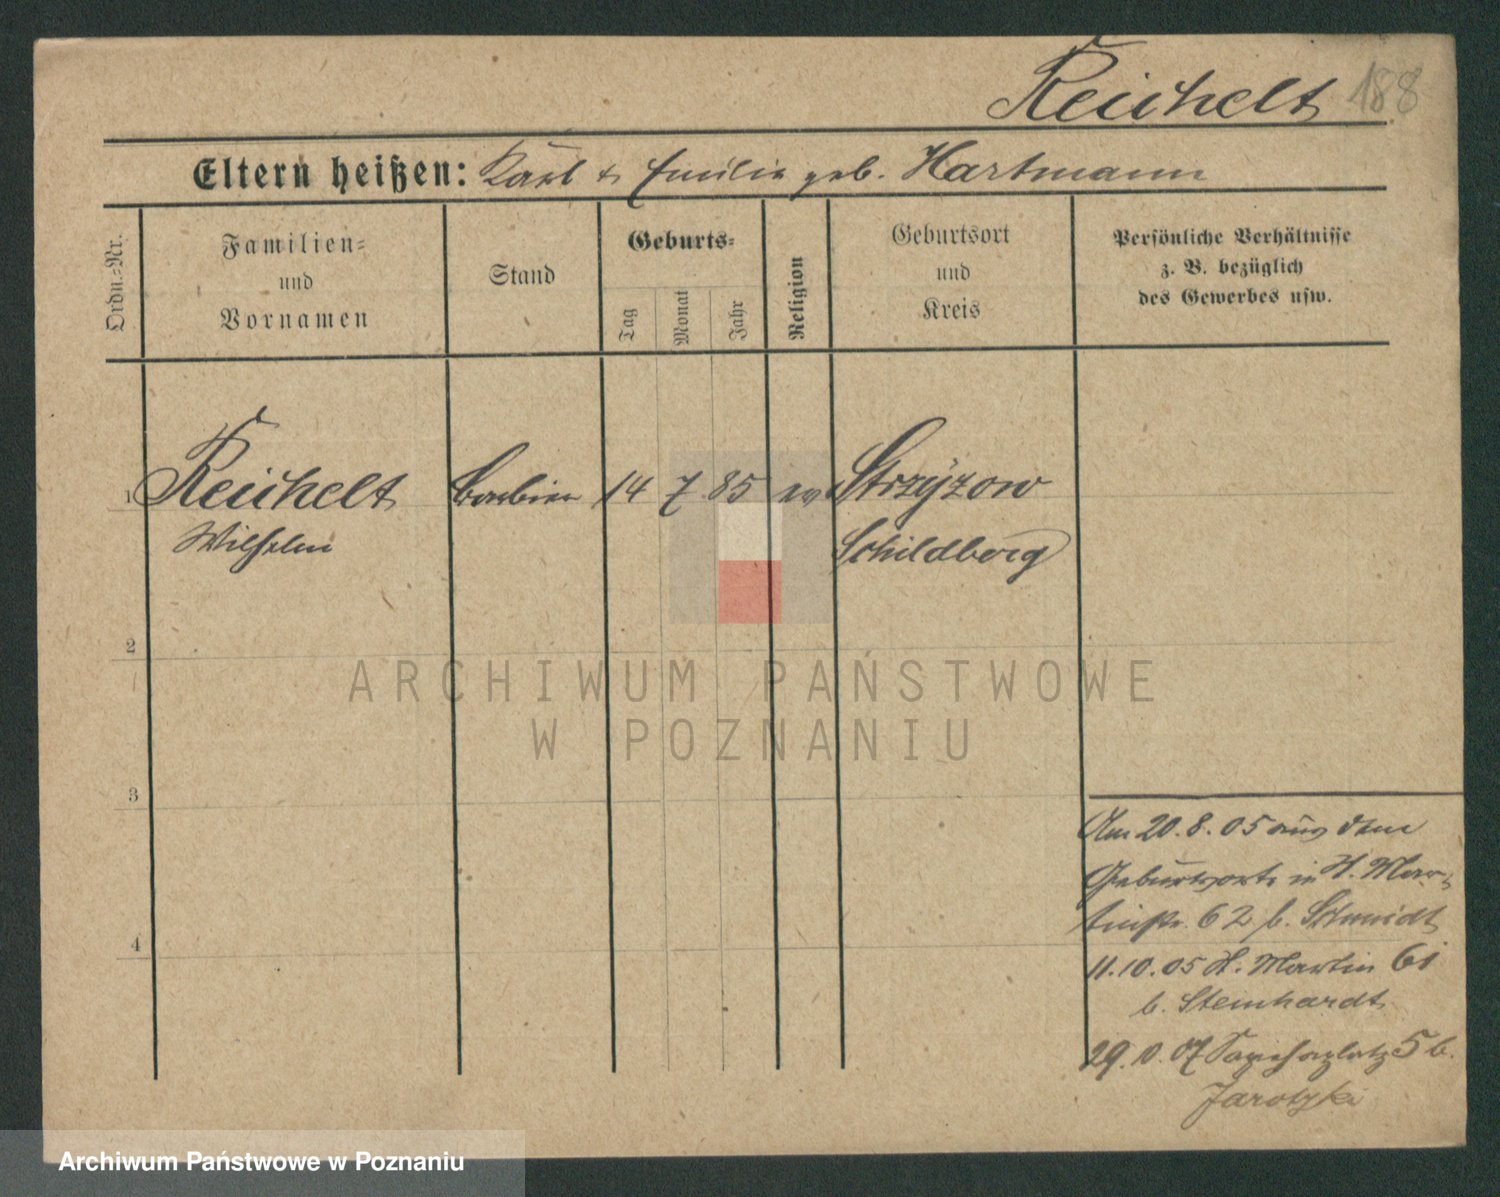 Reichelt 188
Eltern heißen: Karl & Emilie geb. Hartmann
Ordn.-Nr.
Familien-
und
Vornamen
Stand
Geburts-
Tag
Monat
Jahr
Religion
Geburtsort
und
Kreis
Persönliche Verhältnisse
z. B. bezüglich
des Gewerbes usw.
1 Reichelt Barbier 14 7 85 ev Strzyzow
Wilhelm Schildberg
2
3
4
Am 20.8.05 aus dem
Geburtsorte in St. Mar-
tinstr. 62 b. Schmidt
11.10.05 St. Martin 61
b. Steinhardt
29.10.07 Sapiehaplatz 5 b.
Jarotzki
ARCHIWUM PAŃSTWOWE
W POZNANIU
Archiwum Państwowe w Poznaniu